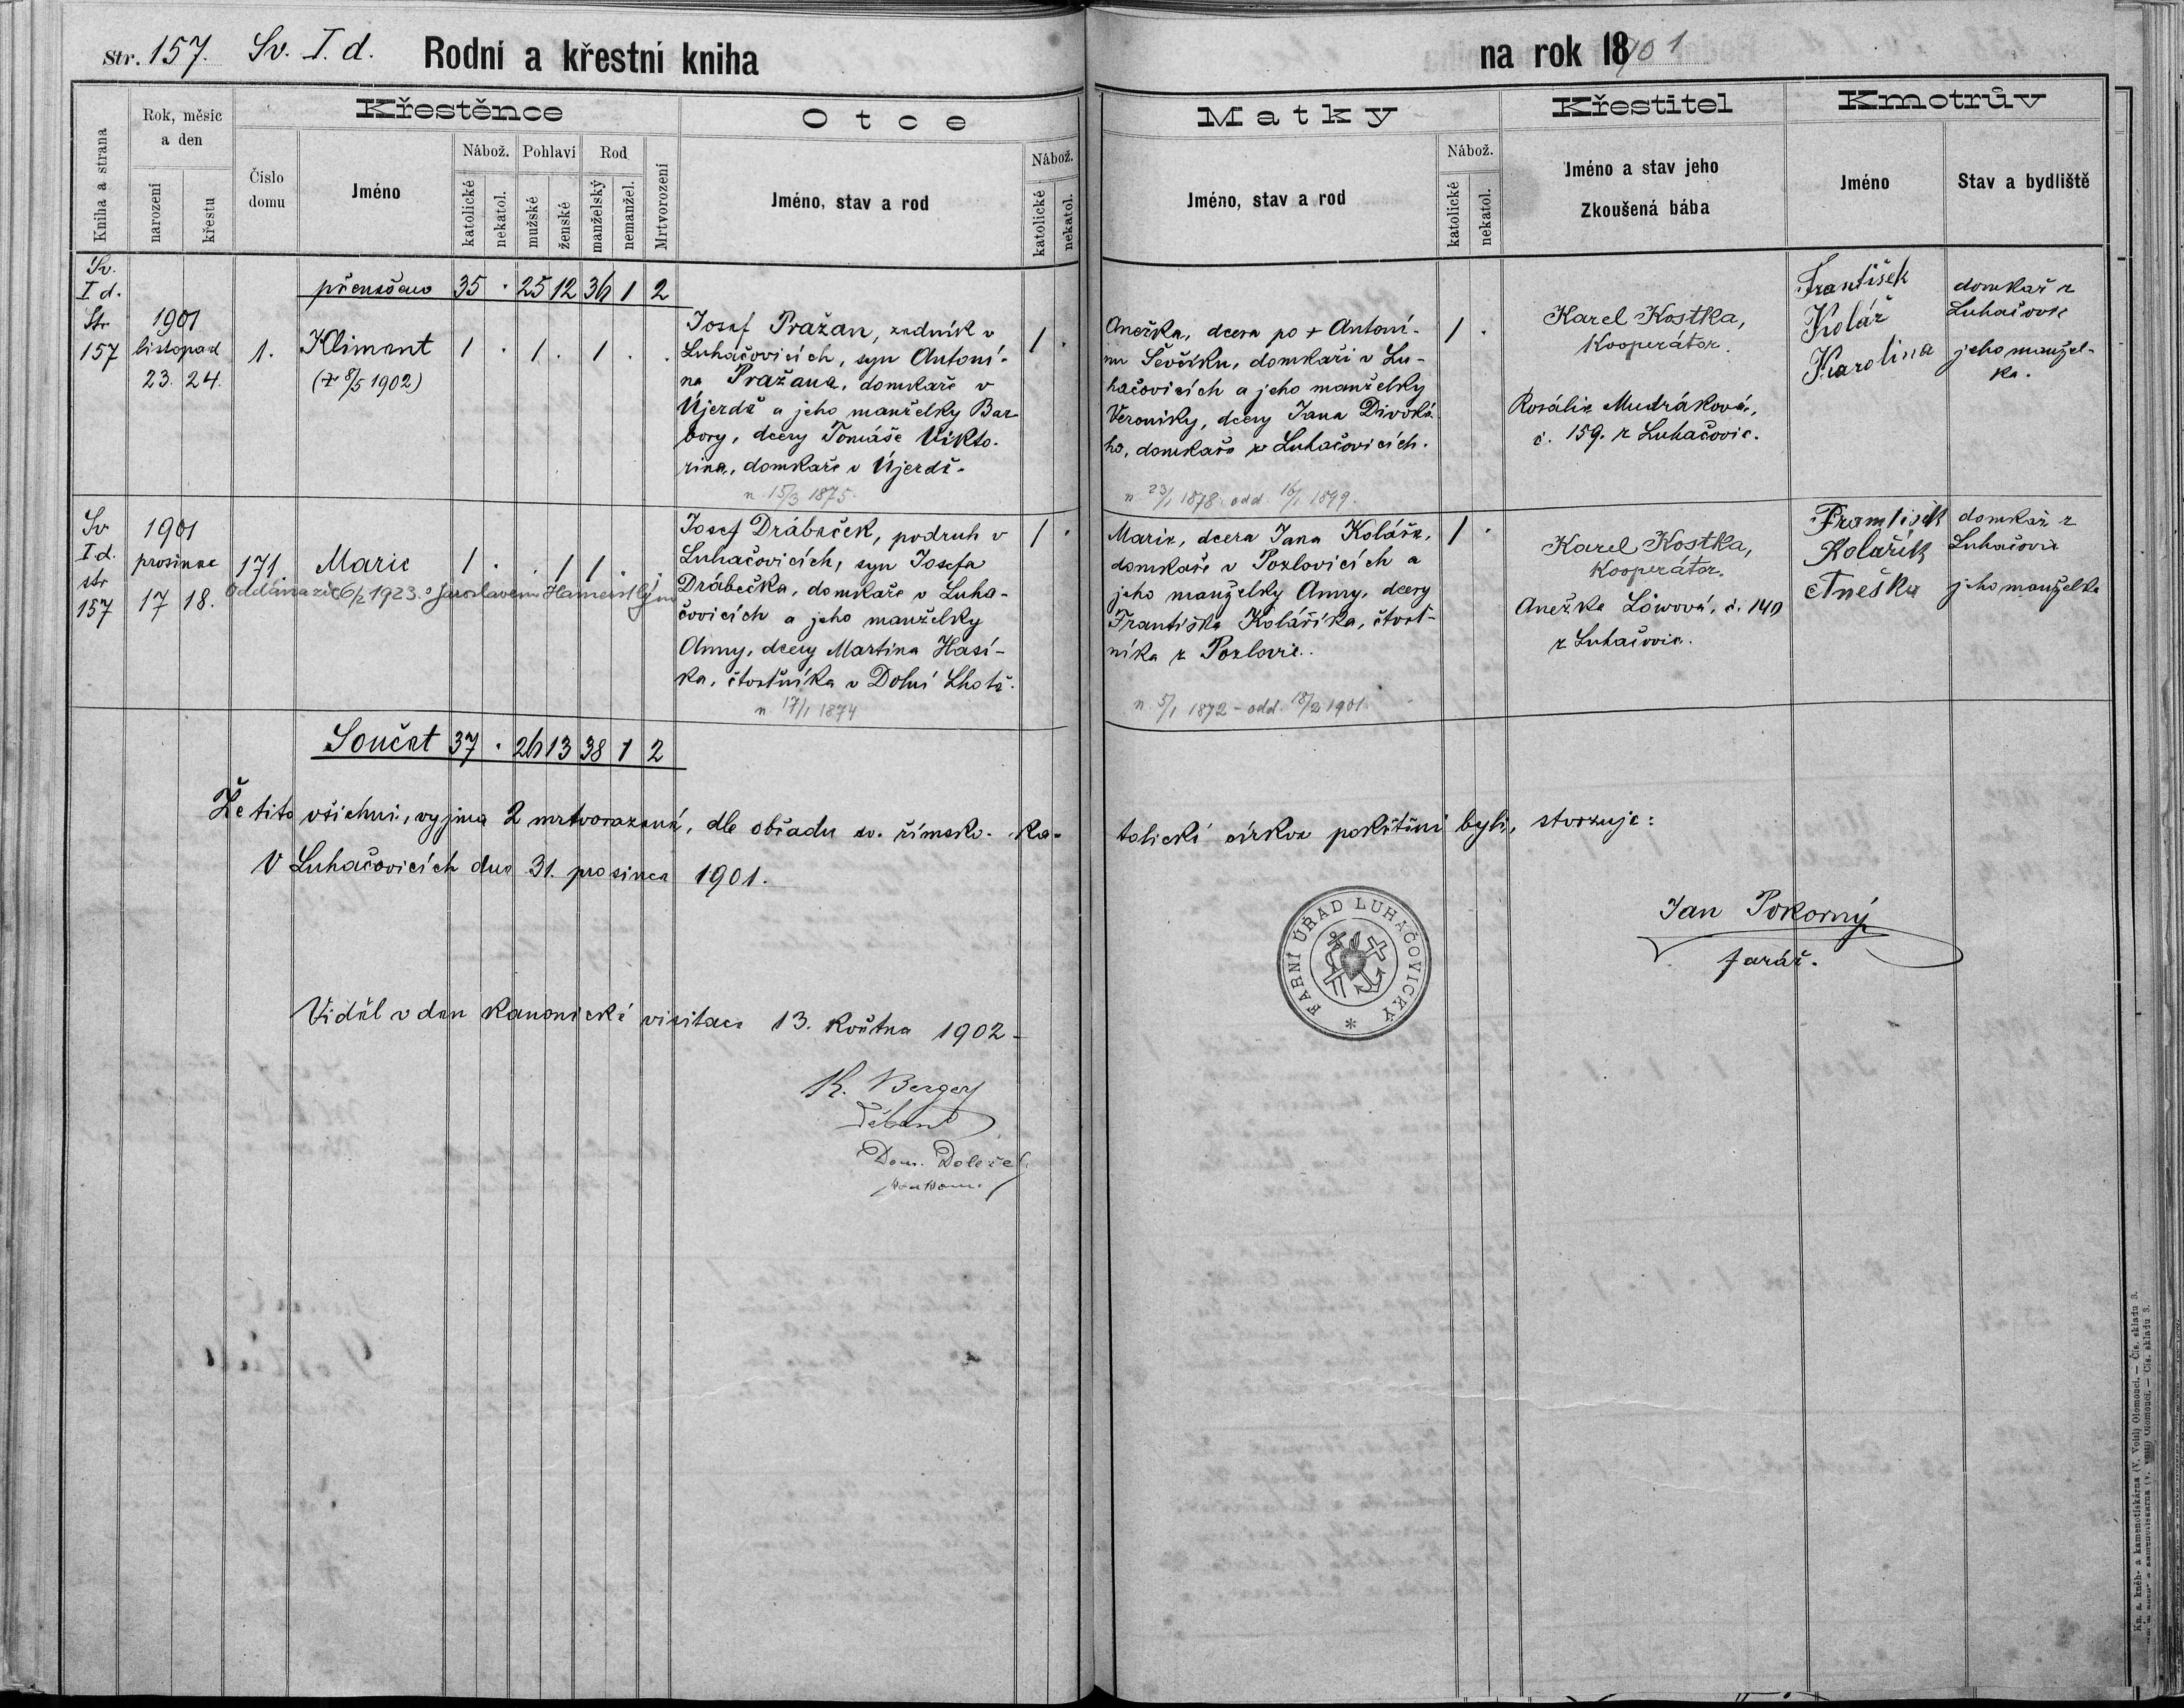 Str. 157. Sv. I. d. Rodní a křestní kniha
na rok 1901
Kniha a strana
Rok, měsíc a den
narození
křestu
Číslo domu
Křestěnce
Jméno
Nábož.
katolické
nekatol.
Pohlaví
mužské
ženské
Rod
manželský
nemanžel.
Mrtvorození
Otce
Jméno, stav a rod
Nábož.
katolické
nekatol.
Matky
Jméno, stav a rod
Nábož.
katolické
nekatol.
Křestitel
Jméno a stav jeho
Zkoušená bába
Kmotrův
Jméno
Stav a bydliště
přenešeno 35 . 25 12 36 1 2
Sv.
I d.
Str
157
1901
listopad
23. 24.
1.
Kliment
(† 8/5 1902)
1 . 1 . 1 . .
Josef Pražan, zedník v
Luhačovicích, syn Antoní-
na Pražana, domkaře v
Újezdě a jeho manželky Bar-
bory, dcery Tomáše Vikto-
rina, domkaře v Újezdě.
n. 15/3 1875.
1 .
Anežka, dcera po + Antoní-
nu Ševčíku, domkaři v Lu-
hačovicích a jeho manželky
Veroniky, dcery Jana Divoké-
ho, domkaře v Luhačovicích.
n 23/1 1878. odd. 16/1 1899.
1 .
Karel Kostka,
Kooperátor.
Rosálie Mudráková,
č. 159. z Luhačovic.
František
Kolář
Karolina
domkař z
Luhačovic
jeho manžel-
ka.
Sv
I d.
str
157
1901
prosinec
17 18.
171
Marie
1 . . 1 1 . .
Oddána zde 6/2 1923. s Jaroslavem
Josef Drábeček, podruh v
Luhačovicích, syn Josefa
Drábečka, domkaře v Luha-
čovicích a jeho manželky
Anny, dcery Martina Hasí-
ka, čtvrtníka v Dolní Lhotě.
n. 17/1 1874
1 .
Marie, dcera Jana Koláře,
domkaře v Pozlovicích a
jeho manželky Anny, dcery
Františka Koláříka, čtvrt-
níka z Pozlovic.
n. 5/1 1872 - odd. 18/2 1901.
1 .
Karel Kostka,
Kooperátor.
Anežka Löwová, č. 140
z Luhačovic.
František
Kolařík
Aneška
domkař z
Luhačovic
jeho manželka
Součet 37 . 26 13 38 1 2
Že tito všichni, vyjma 2 mrtvorozené, dle obřadu sv. římsko-ka-
tolické církve pokřtěni byli, stvrzuje:
V Luhačovicích dne 31. prosince 1901.
FARNÍ ÚŘAD LUHAČOVICKÝ *
Jan Pokorný
farář.
Viděl v den kanonické visitace 13. května 1902 -
K. Berger
Děkan
Dom. Doležel
Kn. a kněh- a kamenotiskárna (V. Voitl) Olomouci. — Čís. skladu 3.